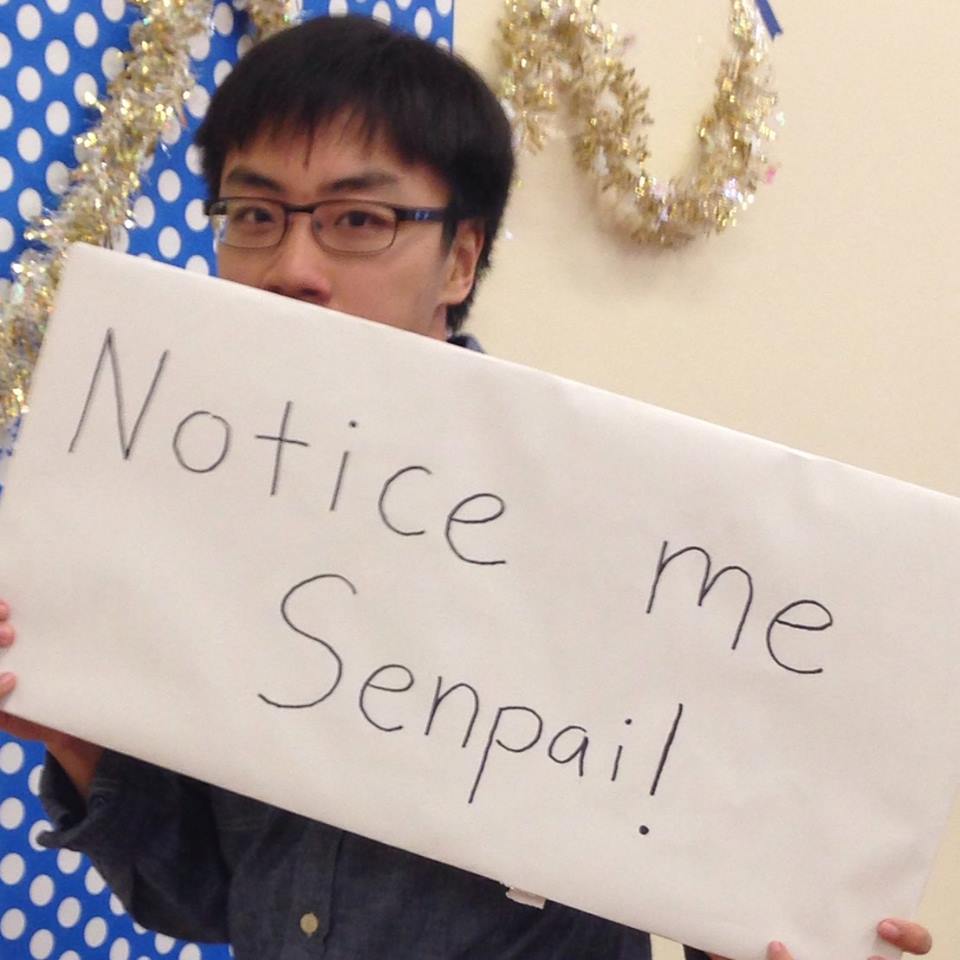 Notice me
Senpai!